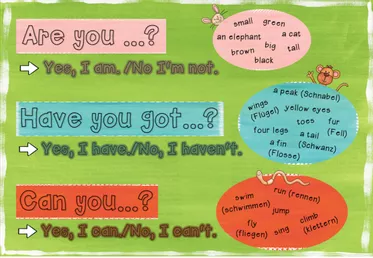 Are you ...?
Yes, I am. /No I'm not.
small green
an elephant a cat
brown big tall
black
Have you got...?
Yes, I have./No, I haven't.
a peak (Schnabel)
wings
(Flügel)
yellow eyes
toes fur
(Fell)
four legs a tail
(Schwanz)
a fin
(Flosse)
Can you...?
Yes, I can./No, I can't.
swim
(schwimmen)
run (rennen)
jump
fly
(fliegen)
sing
climb
(klettern)